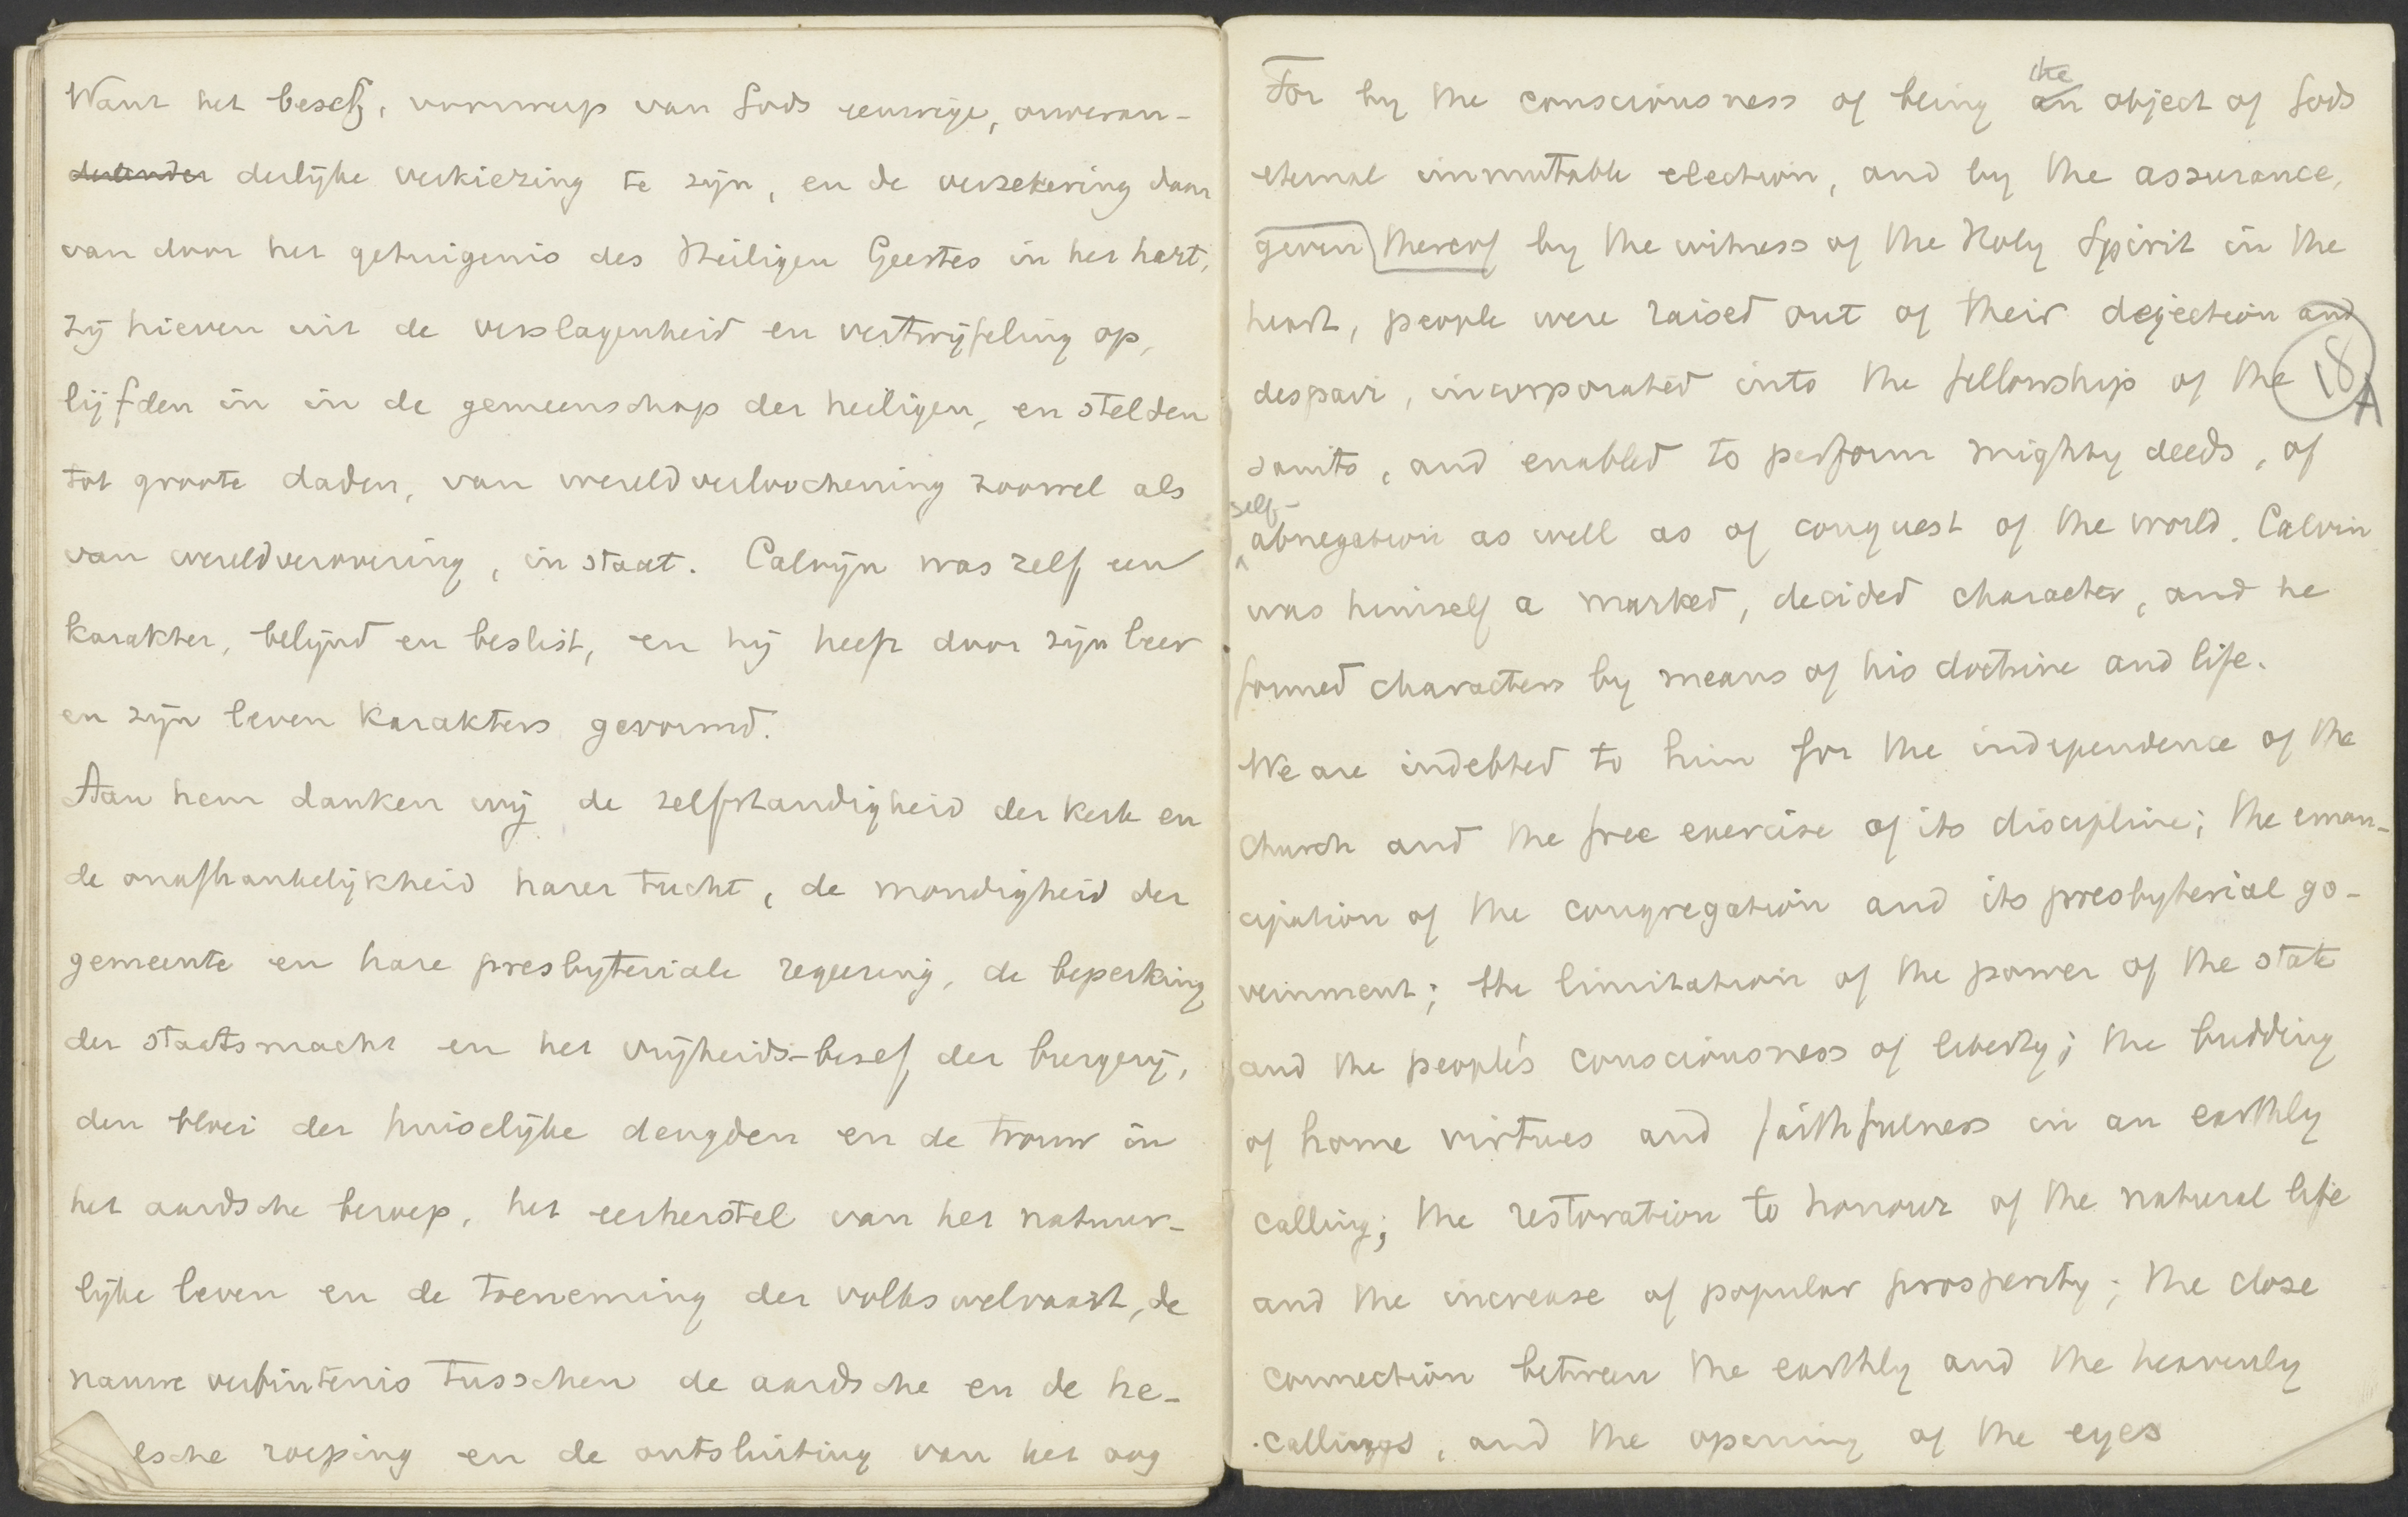 Want het besef, voorwerp van Gods eeuwige, onveran-
derander derlijke verkiezing te zijn, en de verzekering daar
van door het getuigenis des Heiligen Geestes in het hart,
zij hieven uit de verslagenheid en vertwijfeling op,
lijfden in in de gemeenschap der heiligen, en stelden
tot groote daden, van wereldverloochening zoowel als
van wereldverovering, in staat. Calvijn was zelf een
karakter, belijnd en beslist, en hij heeft door zijn leer
en zijn leven karakters gevormd.
Aan hem danken wij de zelfstandigheid der kerk en
de onafhankelijkheid harer tucht, de mondigheid der
gemeente en hare presbyteriale regeering, de beperking
der staatsmacht en het vrijheids-besef der burgerij,
den bloei der huiselijke deugden en de trouw in
het aardsche beroep, het eerherstel van het natuur-
lijke leven en de toeneming der volkswelvaart, de
nauwe verbintenis tusschen de aardsche en de he-
elsche roeping en de ontsluiting van het oog
For by the consciousness of being an the object of Gods
eternal immutable election, and by the assurance,
given thereof by the witness of the Holy Spirit in the
heart, people were raised out of their dejection and
despair, incorporated into the fellowship of the 18 A
saints, and enabled to perform mighty deeds, of
self-abnegation as well as of conquest of the world. Calvin
was himself a marked, decided character, and he
formed characters by means of his doctrine and life.
We are indebted to him for the independence of the
church and the free exercise of its discipline; the eman-
cipation of the congregation and its presbyterial go-
vernment; the limitation of the power of the state
and the people's consciousness of liberty; the budding
of home virtues and faithfulness in an earthly
calling; the restoration to honour of the natural life
and the increase of popular prosperity; the close
connection between the earthly and the heavenly
callings, and the opening of the eyes